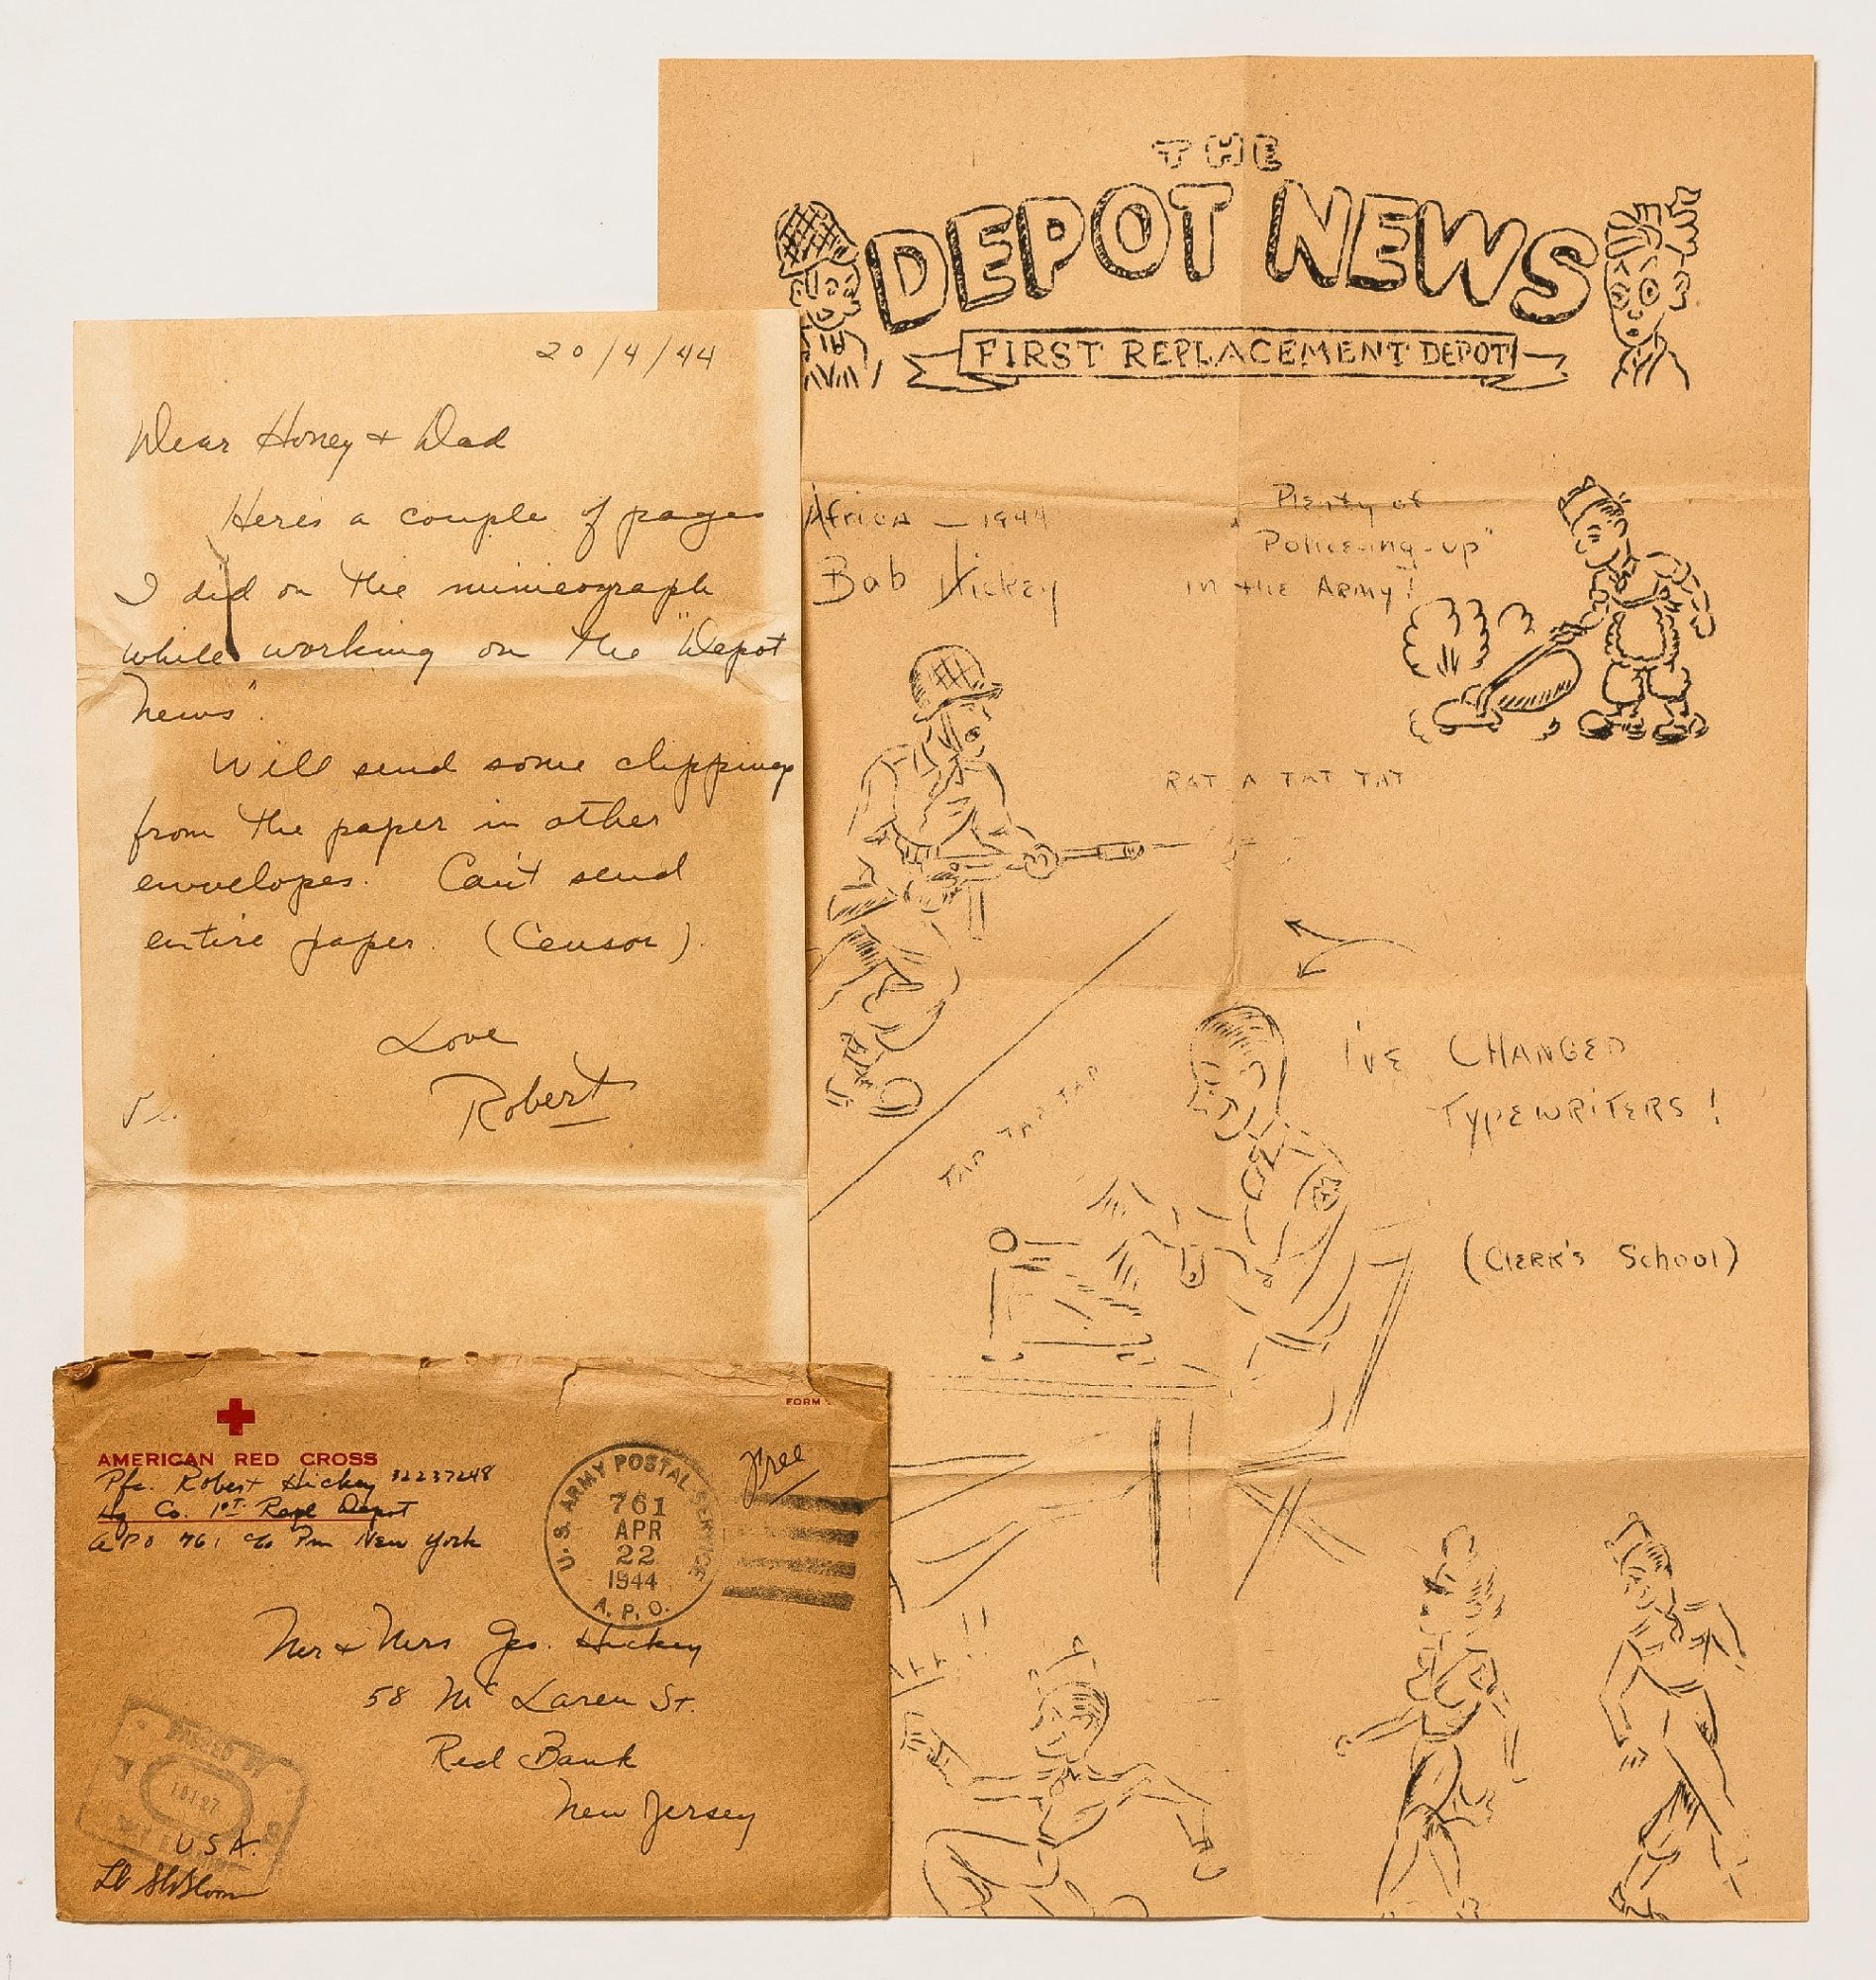 20/4/44
Dear Honey & Dad
Here's a couple of pages
I did on the mimeograph
while working on the "Depot
News".
Will send some clippings
from the paper in other
envelopes. Can't send
entire paper. (Censor).
Love
Robert
THE
DEPOT NEWS
FIRST REPLACEMENT DEPOT
Africa — 1944
Bob Hickey
Plenty of
"Policeing-up"
in the Army!
RAT A TAT TAT
TAP TAP TAP TAP
I'VE CHANGED
TYPEWRITERS!
(Clerk's School)
!!
FORM
AMERICAN RED CROSS
Pfc. Robert Hickey 32237248
Hq Co. 1ST Repl Depot
APO 761 c/o Pm New York
Free
U.S. ARMY POSTAL SERVICE
761
APR
22
1944
A.P.O.
Mr & Mrs Geo. Hickey
58 Mc Laren St.
Red Bank
New Jersey
U.S.A.
PASSED BY